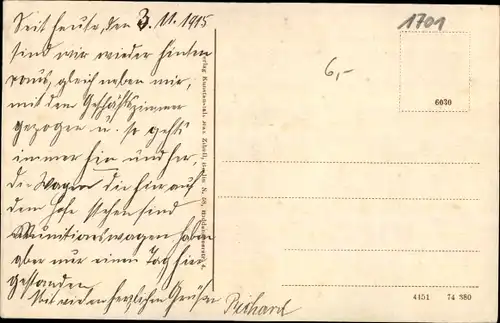 Seit heute, den 3.11.1915
sind wir wieder hinten
raus, gleich neben mir,
mit dem Geschäftszimmer
gezogen u. so gehts
immer hin und her,
die Wagen die hier auf
dem Hofe stehen sind
Munitionswagen haben
aber nur einen Tag hier
gestanden.
Mit vielen herzlichen Grüßen
Richard
1701
6,-
6030
Verlag Kunstanstalt Max Zibell, Berlin N. 58,
4451 74 380